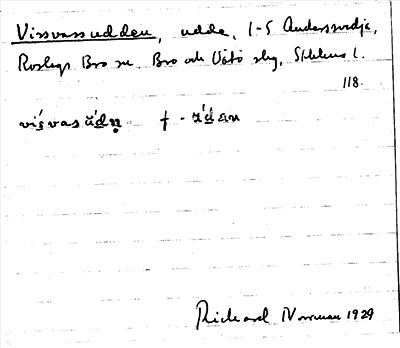 Vissvassudden, udde, 1-5 Andersvedja,
Roslags Bro sn, Bro och Vätö slg, Sthlms l.
118.
Richard Norrman 1929